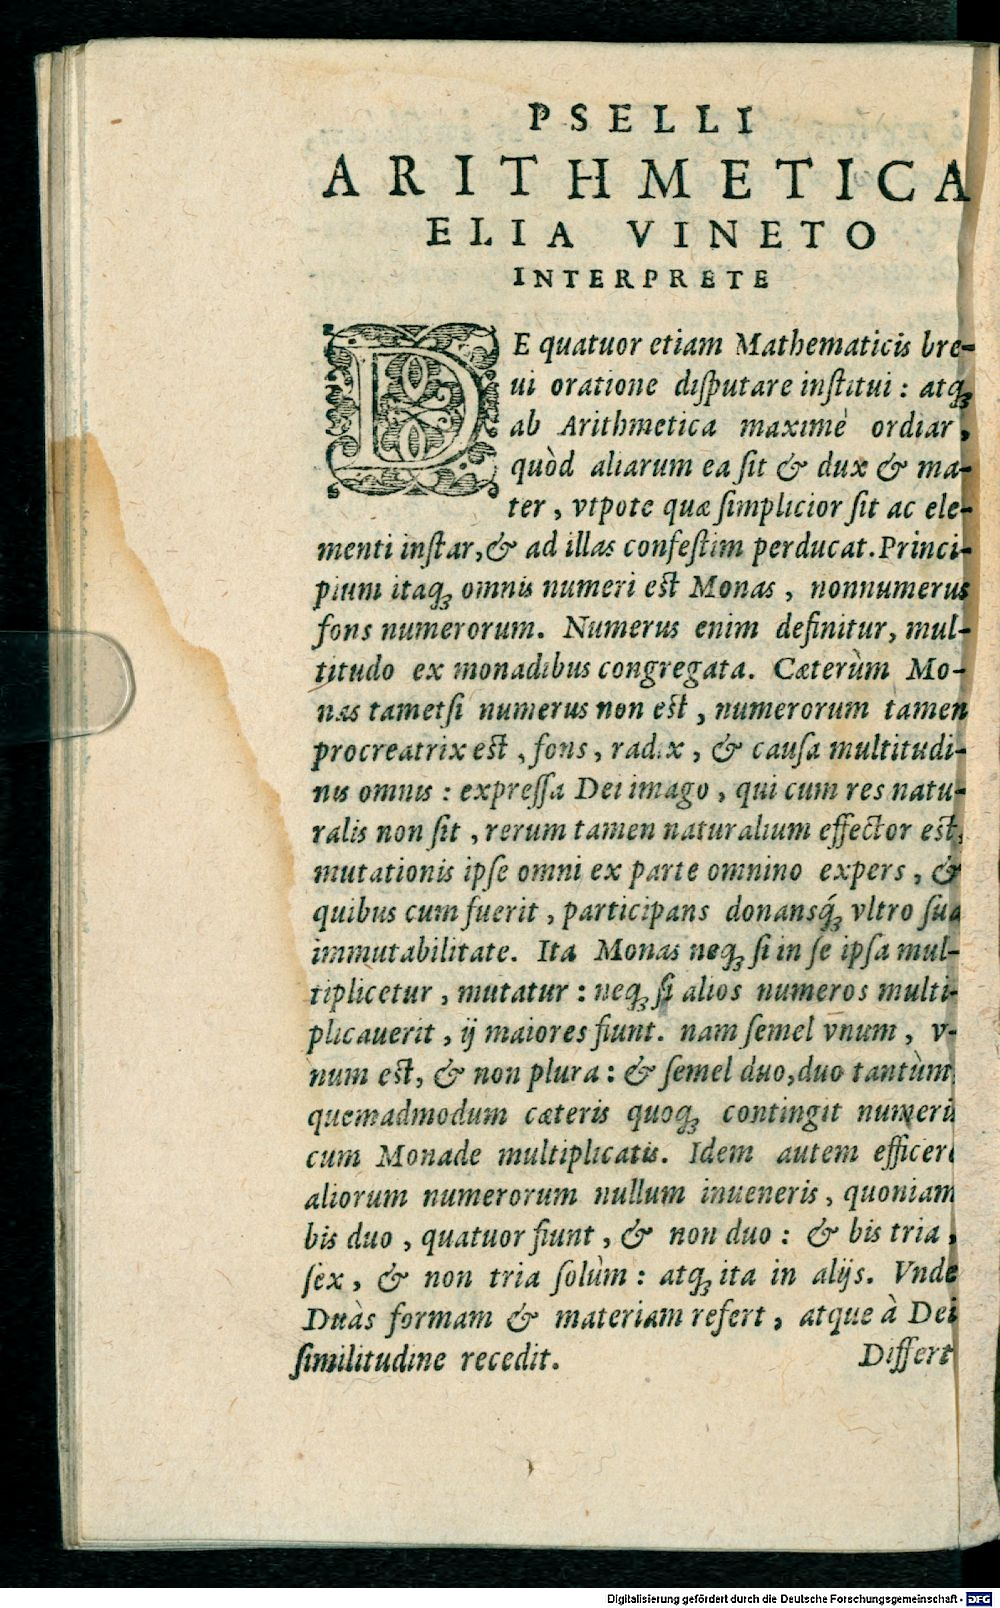 PSELLI
ARITHMETICA
ELIA VINETO
INTERPRETE
DE quatuor etiam Mathematicis bre-
ui oratione disputare institui : atqꝫ
ab Arithmetica maximè ordiar,
quòd aliarum ea sit & dux & ma-
ter, vtpote quæ simplicior sit ac ele-
menti instar, & ad illas confestim perducat. Princi-
pium itaqꝫ omnis numeri est Monas, nonnumerus
fons numerorum. Numerus enim definitur, mul-
titudo ex monadibus congregata. Cæterùm Mo-
nas tametsi numerus non est, numerorum tamen
procreatrix est, fons, radix, & causa multitudi-
nis omnis : expressa Dei imago, qui cum res natu-
ralis non sit, rerum tamen naturalium effector est,
mutationis ipse omni ex parte omnino expers, &
quibus cum fuerit, participans donansq́ꝫ vltro sua
immutabilitate. Ita Monas neqꝫ si in se ipsa mul-
tiplicetur, mutatur : neqꝫ si alios numeros multi-
plicauerit, ij maiores fiunt. nam semel vnum, v-
num est, & non plura : & semel duo, duo tantùm
quemadmodum cæteris quoqꝫ contingit numeris
cum Monade multiplicatis. Idem autem efficere
aliorum numerorum nullum inueneris, quoniam
bis duo, quatuor fiunt, & non duo : & bis tria,
sex, & non tria solùm : atqꝫ ita in alijs. Vnde
Duàs formam & materiam refert, atque à Dei
similitudine recedit.
Differt
Digitalisierung gefördert durch die Deutsche Forschungsgemeinschaft - DFG